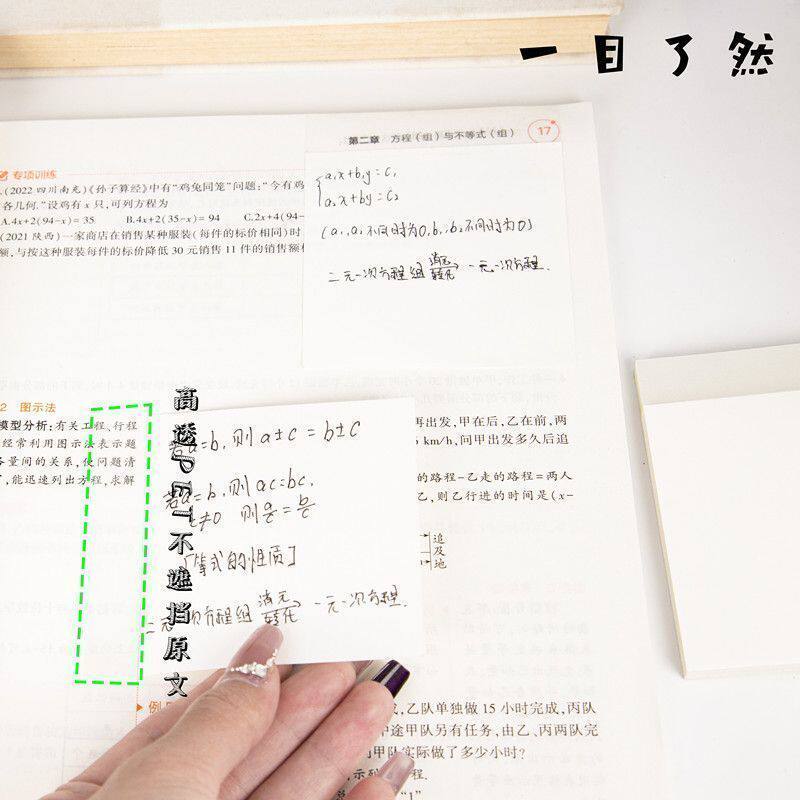 一目了然
第二章 方程(组)与不等式(组) 17
专项训练
(2022 四川南充)《孙子算经》中有“鸡兔同笼”问题:“今有鸡
各几何.”设鸡有 x 只,可列方程为
A.4x+2(94-x)=35 B.4x+2(35-x)=94 C.2x+4(94-
(2021 陕西)一家商店在销售某种服装(每件的标价相同)时
额,与按这种服装每件的标价降低 30 元销售 11 件的销售额相
a₁x+b₁y=c₁
a₂x+by=c₂
(a₁,a₂不同时为0,b₁,b₂不同时为0)
二元一次方程组 消元 转化 一元一次方程.
高透PET不遮挡原文
2 图示法
模型分析:有关工程、行程
经常利用图示法表示题
各量间的关系,使问题清
,能迅速列出方程,求解
若a=b,则 a±c=b±c
若a=b,则 ac=bc,
c≠0 则a/c=b/c
[等式的性质]
二元一次方程组 消元 转化 一元一次方程.
再出发,甲在后,乙在前,两
km/h,问甲出发多久后追
的路程-乙走的路程=两人
乙,则乙行进的时间是(x-
追
及
地
成,乙队单独做 15 小时完成,丙队
中途甲队另有任务,由乙、丙两队完
甲队实际做了多少小时?
示列方程.
“1”